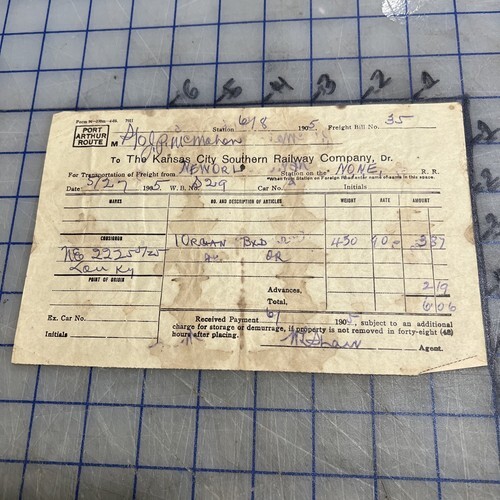 6 5 4 3 2 1
PORT ARTHUR ROUTE
Station 6/8 1905 Freight Bill No. 35
M McMahon
To The Kansas City Southern Railway Company, Dr.
For Transportation of Freight from NEWORL Station on the NONE, R. R.
Date 5/27 1905 W. B. No. 829 Car No. Initials
MARKS NO. AND DESCRIPTION OF ARTICLES WEIGHT RATE AMOUNT
CONSIGNOR 1 ORGAN BXD 430 90 387
Lou Ky OR
POINT OF ORIGIN
Advances, 219
Total, 606
Ex. Car No.
Received Payment 6/ 1905, subject to an additional
charge for storage or demurrage, if property is not removed in forty-eight (48)
Initials hours after placing.
Agent.